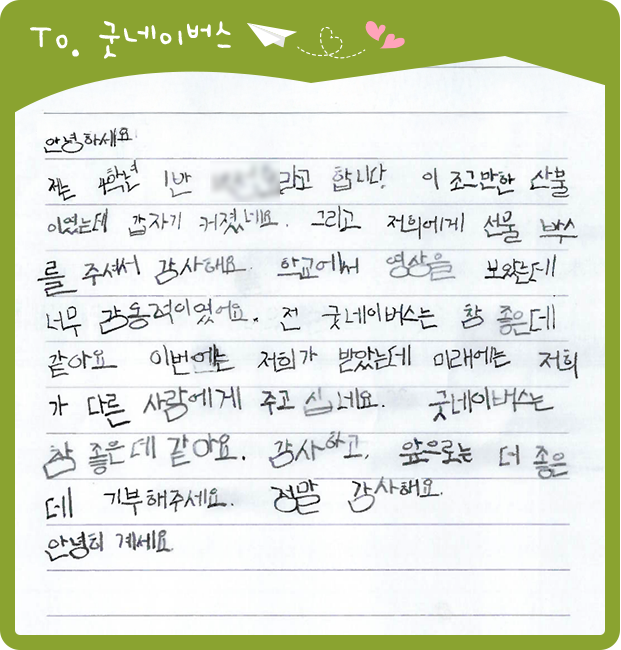 To. 굿네이버스
안녕하세요
저는 4학년 1반 라고 합니다. 이 조그만한 산물
이였는데 갑자기 커졌네요. 그리고 저희에게 선물 박스
를 주셔서 감사해요. 학교에서 영상을 보았는데
너무 감동적이였어요. 전 굿네이버스는 참 좋은데
같아요. 이번에는 저희가 받았는데 미래에는 저희
가 다른 사람에게 주고 십네요. 굿네이버스는
참 좋은데 같아요. 감사하고, 앞으로는 더 좋은
데 기부해주세요. 정말 감사해요.
안녕히 계세요